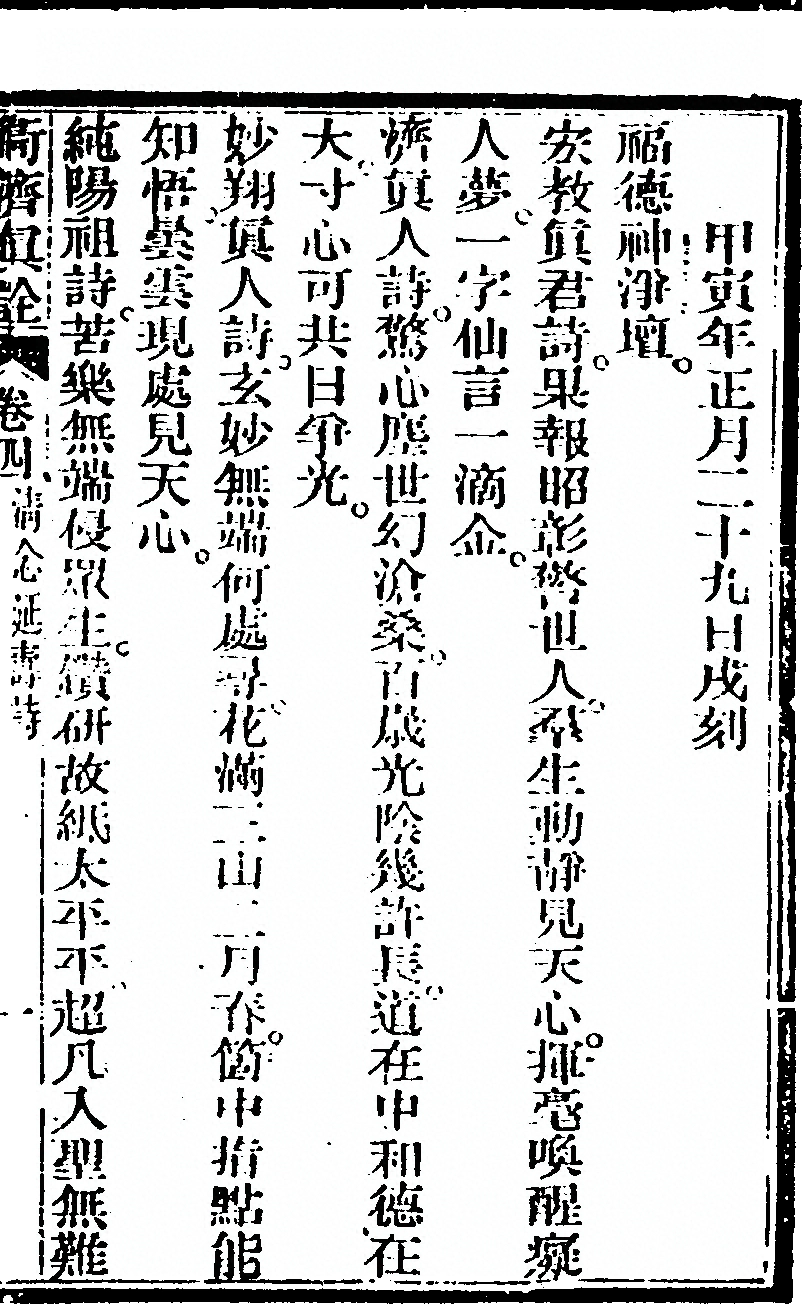 甲寅年正月二十九日戌刻
福德神淨壇。
宏教眞君詩。果報昭彰警世人。羣生動靜見天心。揮毫喚醒癡
人夢。一字仙言一滴金。
濟眞人詩。驚心塵世幻滄桑。百歲光陰幾許長。道在中和德在
大。寸心可共日爭光。
妙翔眞人詩。玄妙無端何處尋。花滿三山二月春。箇中指點能
知悟。曇雲現處見天心。
純陽祖詩。苦樂無端侵眾生。鑽研故紙太平平。超凡入聖無難
濟眞詮 卷四 清心延壽詩